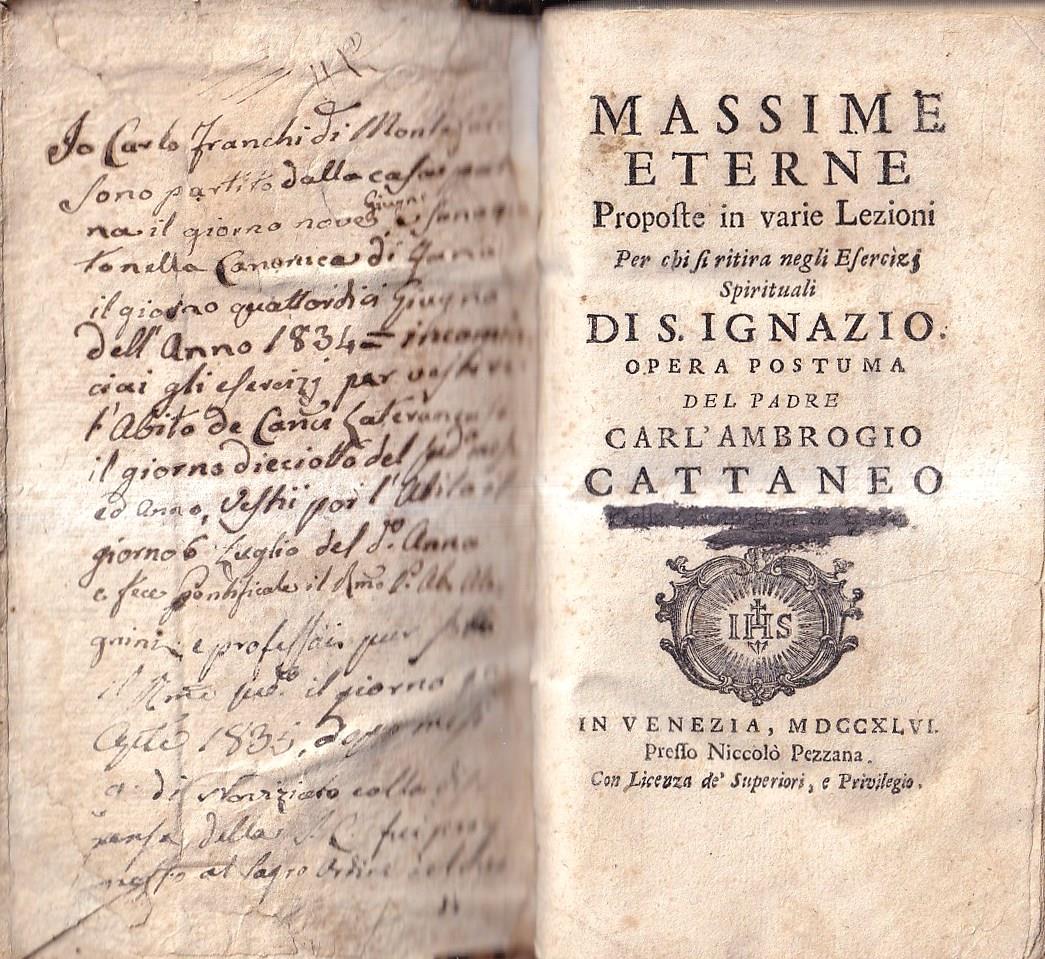 Io Carlo Franchi di
sono partito dalla casa
na il giorno nove Giugno e
to nella Canonica di
il giorno quattordici Giugno
dell'Anno 1834 = incomin
ciai gli esercizj per vestire
l'Abito de Canci Lateranen
il giorno dieciotto del sud
ed Anno, Vestii poi l'Abito
giorno 6 Luglio del do. Anno
e fece Pontificale il Rmo P. Ab.
gnini, e professai per
il Rmo sudo. il giorno
1835, dopo
di Noviziato colla
della S. C. fui pro
mosso al Sagro Ordine
MASSIME
ETERNE
Propoſte in varie Lezioni
Per chi ſi ritira negli Eſercizj
Spirituali
DI S. IGNAZIO.
OPERA POSTUMA
DEL PADRE
CARL'AMBROGIO
CATTANEO
IHS
IN VENEZIA, MDCCXLVI.
Preſſo Niccolò Pezzana.
Con Licenza de' Superiori, e Privilegio.